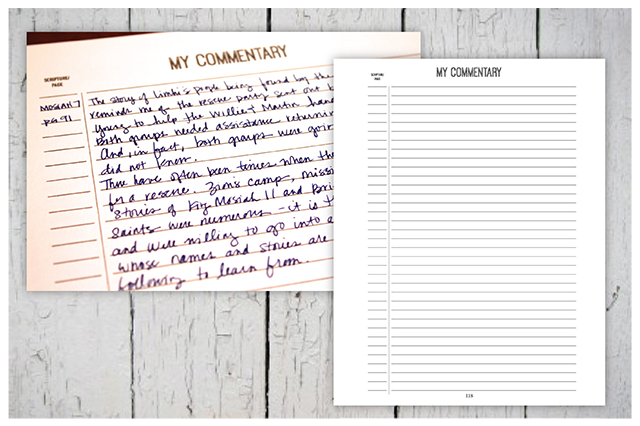 MY COMMENTARY
SCRIPTURE/
PAGE
MOSIAH 7
pg. 91
The story of Limhi's people being found by the
reminds me of the rescue party sent out b
Young to help the Willie & Martin hand
Both groups needed assistance returnin
And, in fact, both groups were goin
did not know.
There have often been times when the
for a rescue. Zion's camp, missi
Stories of King Mosiah II and Bri
Saints were numerous - it is t
and were willing to go into a
whose names and stories are
following to learn from.
MY COMMENTARY
SCRIPTURE/
PAGE